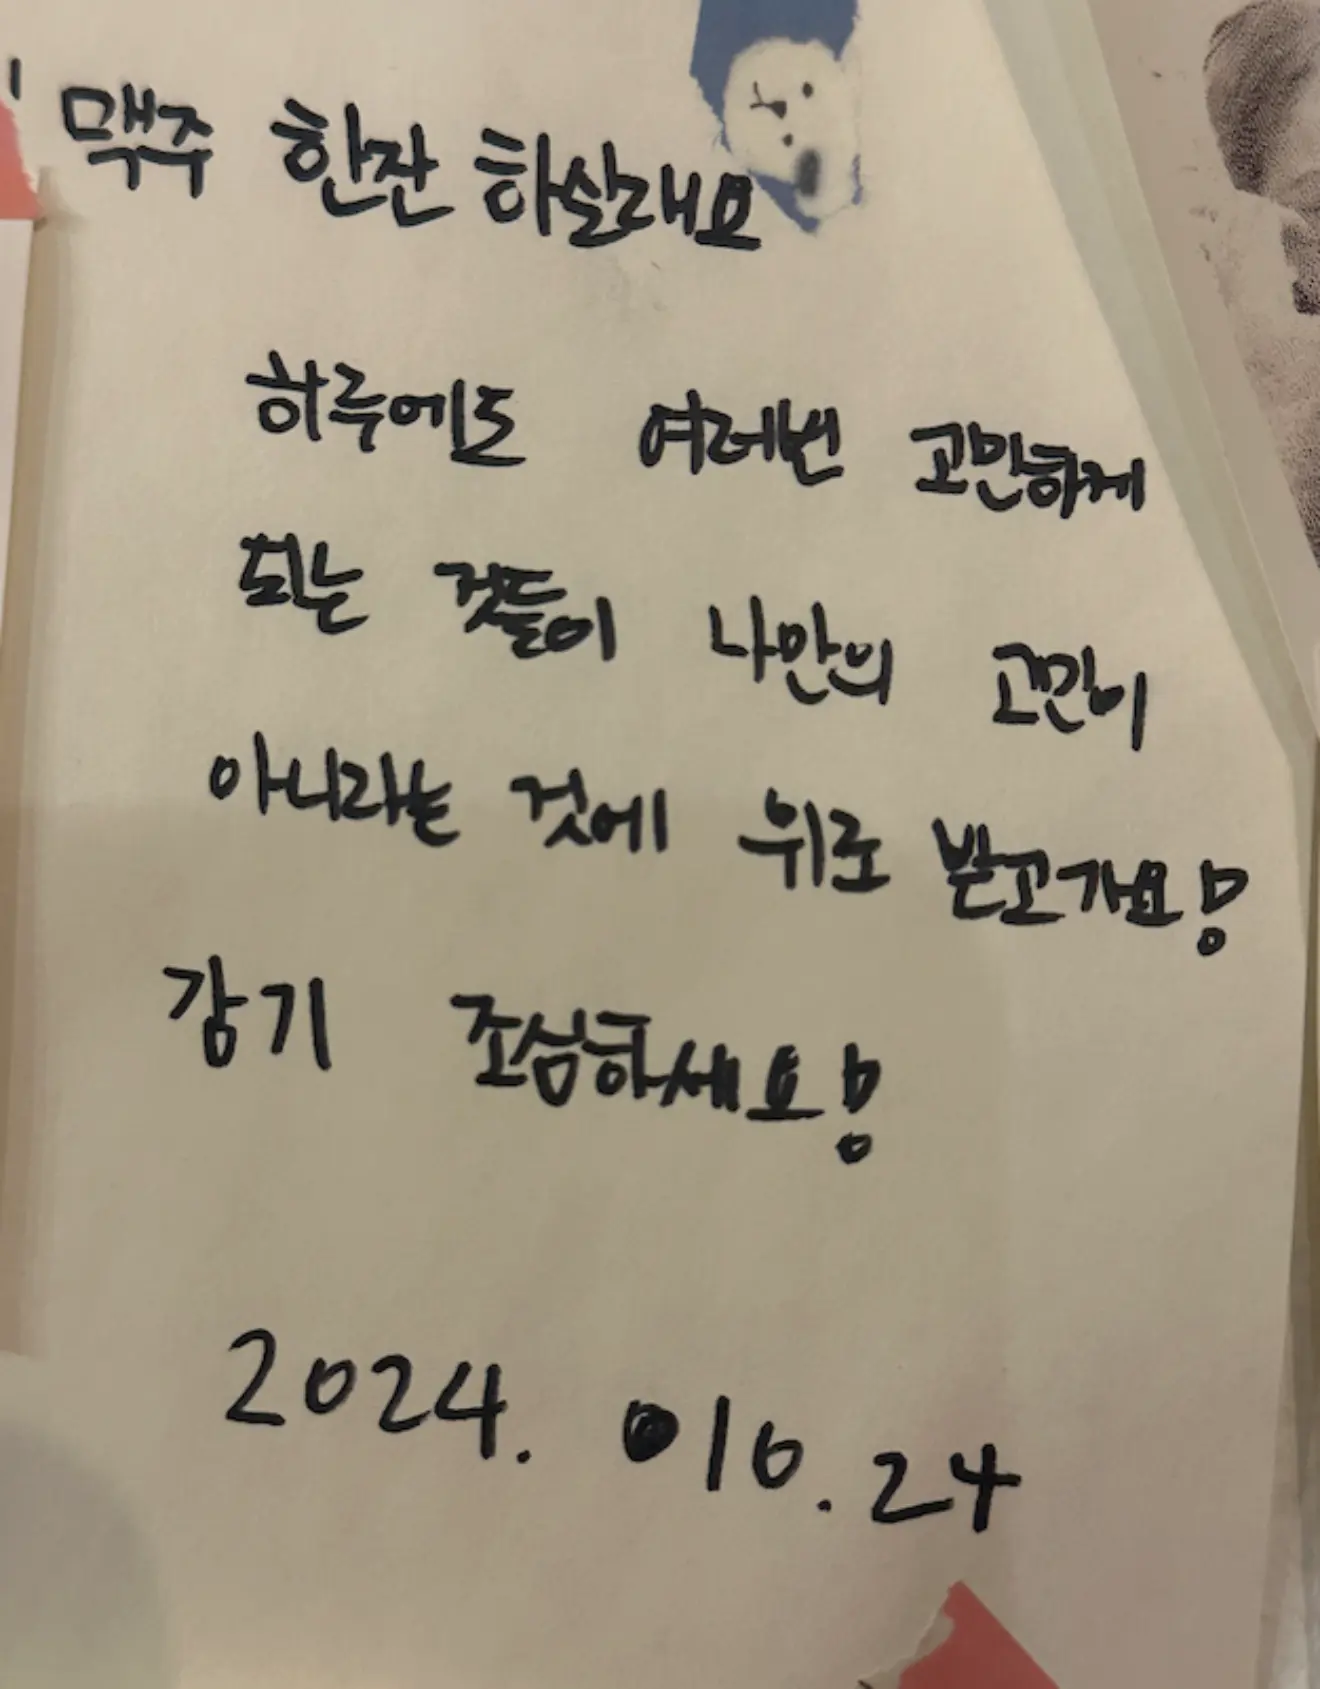 맥주 한잔 하실래요
하루에도 여러번 고민하게
되는 것들이 나만의 고민이
아니라는 것에 위로 받고가요!
감기 조심하세요!
2024. 10. 24